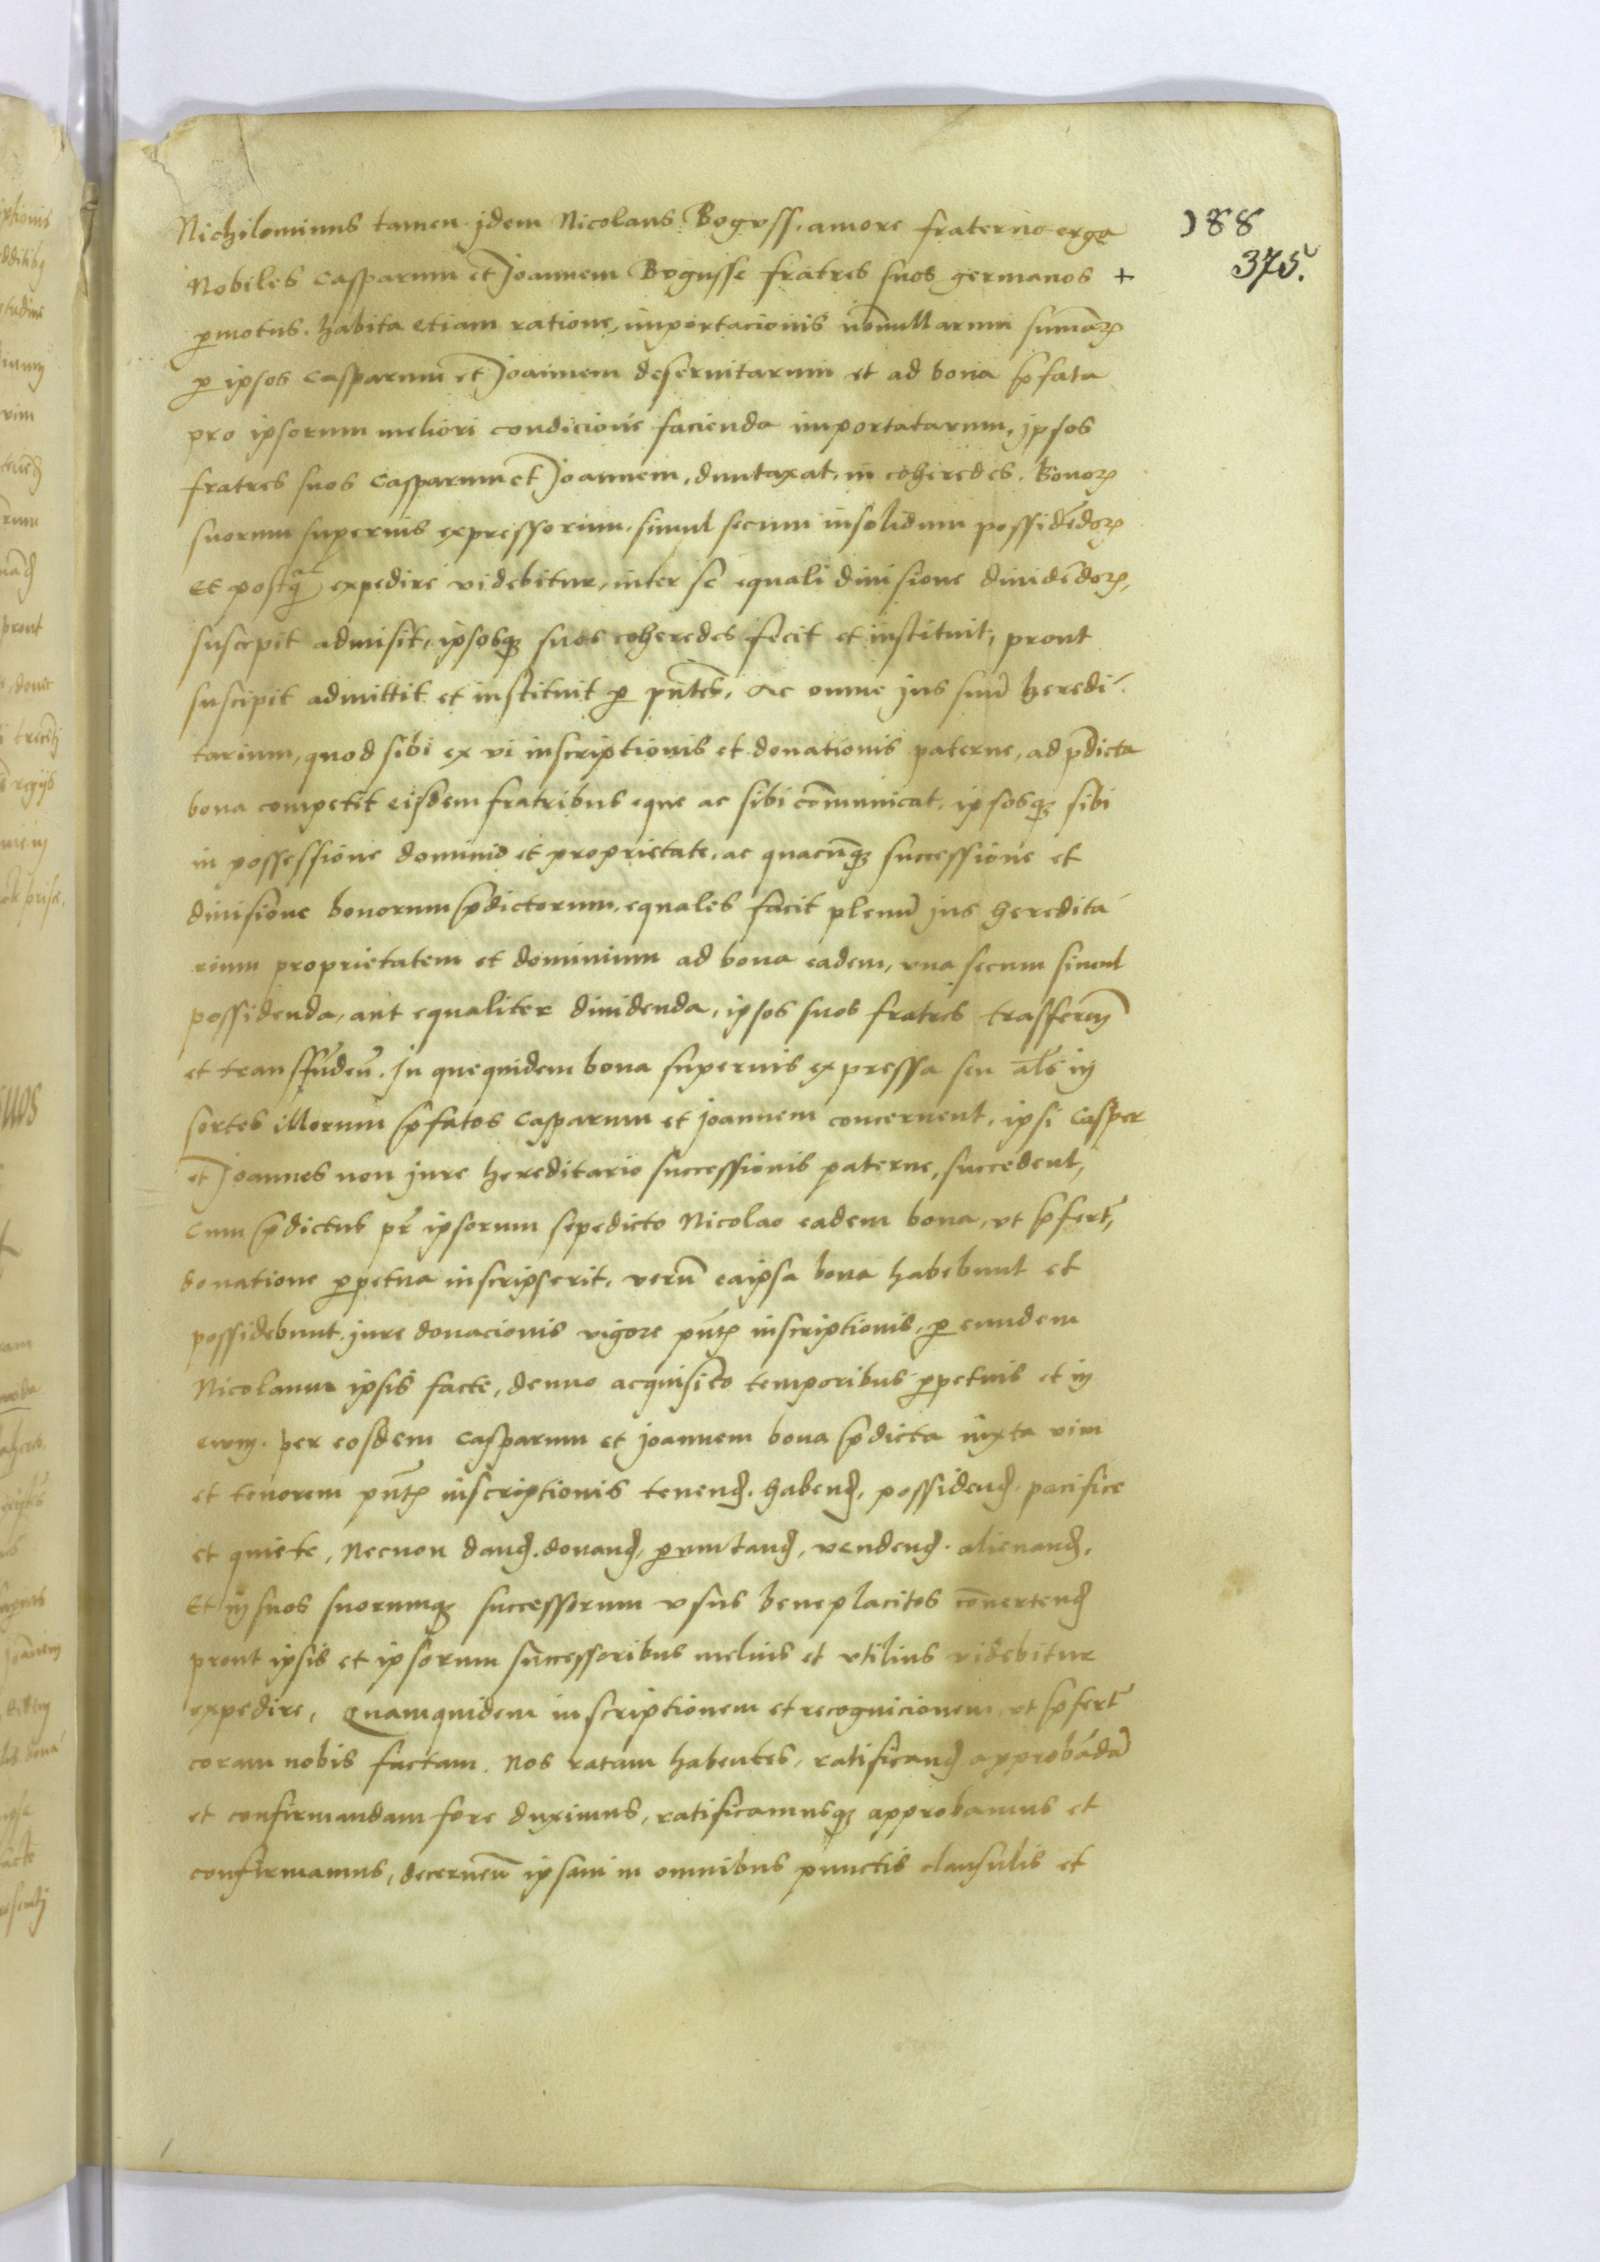 Nichilominus tamen jdem Nicolaus Boguss. amore fraterno erga
Nobiles Casparum et Joannem Bogusse fratres suos germanos +
188
375.
ꝑmotus. habita etiam ratione, importacionis nōnullarum sumaꝝ
ꝑ ipsos Casparum et Joannem deseruitarum et ad bona p̄fata
pro ipsorum meliori condicione facienda importatarum, ipsos
fratres suos Casparum et Joannem, duntaxat, in coheredes. Bonoꝝ
suorum superius expressorum, simul secum insolidum possidēdoꝝ
Et postq̄ expedire videbitur, inter se equali diuisione diuidēdoꝝ,
suscepit admisit, ipsosqꝫ suos coheredes fecit et instituit, prout
suscipit admittit et instituit ꝑ pn̄tes, Ac omne jus suū heredi
tarium, quod sibi ex vi inscriptionis et donationis paterne, ad p̄dicta
bona competit eisdem fratribus eque ac sibi cōmunicat, ipsosqꝫ sibi
in possessione dominio et proprietate, ac quacūqꝫ successione et
diuisione bonorum p̄dictorum, equales facit plenū jus heredita
rium proprietatem et dominium ad bona eadem, vna secum simul
possidenda, aut equaliter diuidenda, ipsos suos fratres trasferen̄
et transffūden̄. In quequidem bona superius expressa seu al̄s in
sortes illorum p̄fatos Casparum et Joannem concernent, ipsi Casper
et Joannes non jure hereditario successionis paterne, succedent,
Cum p̄dictus pr̄ ipsorum sepedicto Nicolao eadem bona, vt p̄fert̄,
donatione ꝑpetua inscripserit, verū eaipsa bona habebunt et
possidebunt, jure donacionis vigore pn̄tꝭ inscriptionis, ꝑ eundem
Nicolaum ipsis facte, denuo acquisito temporibus ꝑpetuis et in
ewm. per eosdem Casparum et Joannem bona p̄dicta iuxta vim
et tenorem pn̄tꝭ inscriptionis tenenđ. habenđ, possidenđ. pacifice
et quiete, Necnon danđ. donanđ, ꝑmutanđ, vendenđ. alienanđ.
Et in suos suorumqꝫ successorum vsus beneplacitos cōuertenđ
prout ipsis et ipsorum successoribus melius et vtilius videbitur
expedire, Quamquidem inscriptionem et recognicionem, vt p̄fert̄
coram nobis factam. Nos ratam habentes, ratificanđ approbādā
et confirmandam fore duximus, ratificamusqꝫ approbamus et
confirmamus, decernen̄ ipsam in omnibus punctis clausulis et